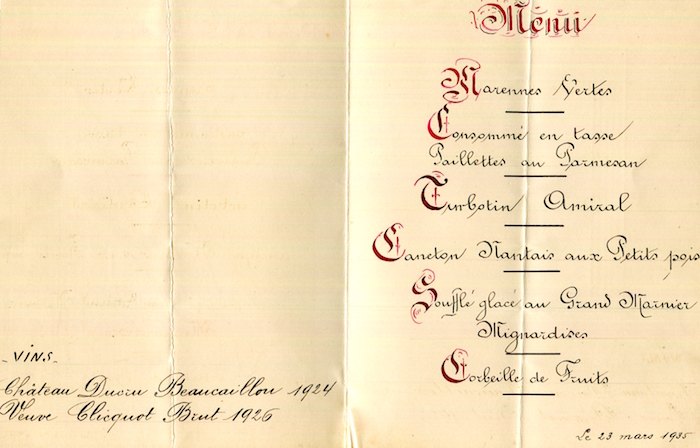 -VINS-
Château Ducru Beaucaillou 1924
Veuve Clicquot Brut 1926
Menu
Marennes Vertes
Consommé en tasse
Paillettes au Parmesan
Turbotin Amiral
Caneton Nantais aux Petits pois
Soufflé glacé au Grand Marnier
Mignardises
Corbeille de Fruits
Le 23 mars 1935